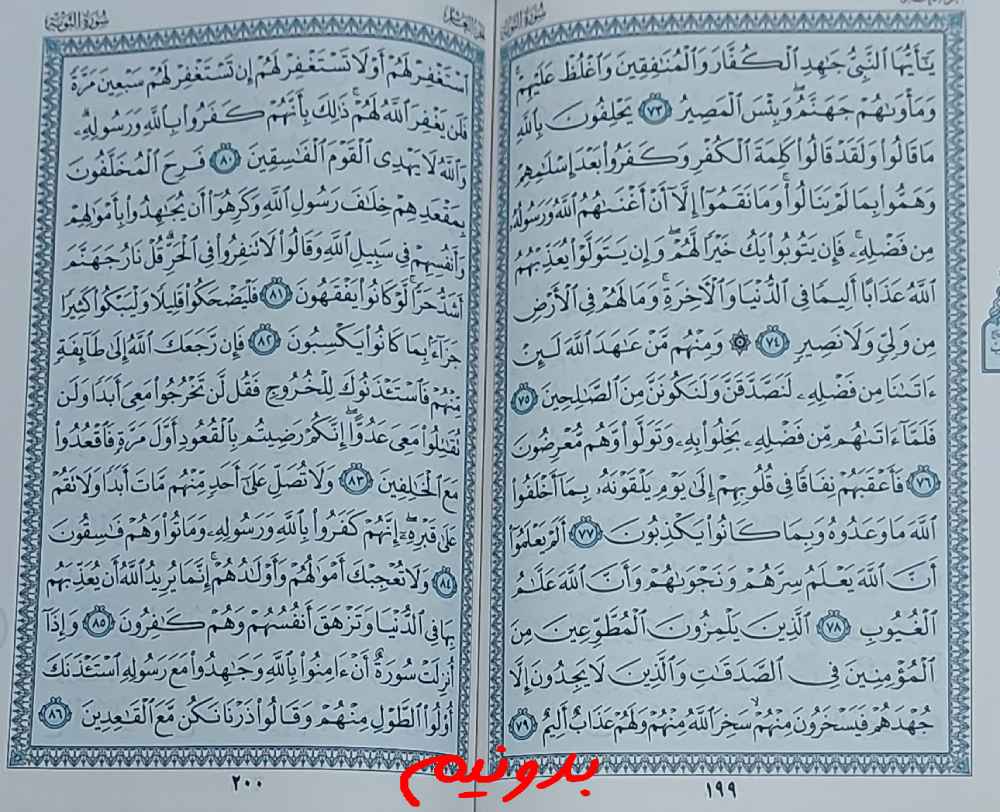 سُورَةُ التَّوْبَةِ
يَٰٓأَيُّهَا ٱلنَّبِيُّ جَٰهِدِ ٱلْكُفَّارَ وَٱلْمُنَٰفِقِينَ وَٱغْلُظْ عَلَيْهِمْ ۚ
وَمَأْوَىٰهُمْ جَهَنَّمُ ۖ وَبِئْسَ ٱلْمَصِيرُ ٧٣ يَحْلِفُونَ بِٱللَّهِ
مَا قَالُوا۟ وَلَقَدْ قَالُوا۟ كَلِمَةَ ٱلْكُفْرِ وَكَفَرُوا۟ بَعْدَ إِسْلَٰمِهِمْ
وَهَمُّوا۟ بِمَا لَمْ يَنَالُوا۟ ۚ وَمَا نَقَمُوٓا۟ إِلَّآ أَنْ أَغْنَىٰهُمُ ٱللَّهُ وَرَسُولُهُۥ
مِن فَضْلِهِۦ ۚ فَإِن يَتُوبُوا۟ يَكُ خَيْرًا لَّهُمْ ۖ وَإِن يَتَوَلَّوْا۟ يُعَذِّبْهُمُ
ٱللَّهُ عَذَابًا أَلِيمًا فِى ٱلدُّنْيَا وَٱلْءَاخِرَةِ ۚ وَمَا لَهُمْ فِى ٱلْأَرْضِ
مِن وَلِىٍّ وَلَا نَصِيرٍ ٧٤ ۞ وَمِنْهُم مَّنْ عَٰهَدَ ٱللَّهَ لَئِنْ
ءَاتَىٰنَا مِن فَضْلِهِۦ لَنَصَّدَّقَنَّ وَلَنَكُونَنَّ مِنَ ٱلصَّٰلِحِينَ ٧٥
فَلَمَّآ ءَاتَىٰهُم مِّن فَضْلِهِۦ بَخِلُوا۟ بِهِۦ وَتَوَلَّوا۟ وَّهُم مُّعْرِضُونَ
٧٦ فَأَعْقَبَهُمْ نِفَاقًا فِى قُلُوبِهِمْ إِلَىٰ يَوْمِ يَلْقَوْنَهُۥ بِمَآ أَخْلَفُوا۟
ٱللَّهَ مَا وَعَدُوهُ وَبِمَا كَانُوا۟ يَكْذِبُونَ ٧٧ أَلَمْ يَعْلَمُوٓا۟
أَنَّ ٱللَّهَ يَعْلَمُ سِرَّهُمْ وَنَجْوَىٰهُمْ وَأَنَّ ٱللَّهَ عَلَّٰمُ
ٱلْغُيُوبِ ٧٨ ٱلَّذِينَ يَلْمِزُونَ ٱلْمُطَّوِّعِينَ مِنَ
ٱلْمُؤْمِنِينَ فِى ٱلصَّدَقَٰتِ وَٱلَّذِينَ لَا يَجِدُونَ إِلَّا
جُهْدَهُمْ فَيَسْخَرُونَ مِنْهُمْ ۙ سَخِرَ ٱللَّهُ مِنْهُمْ وَلَهُمْ عَذَابٌ أَلِيمٌ ٧٩
١٩٩
سُورَةُ التَّوْبَةِ
ٱسْتَغْفِرْ لَهُمْ أَوْ لَا تَسْتَغْفِرْ لَهُمْ إِن تَسْتَغْفِرْ لَهُمْ سَبْعِينَ مَرَّةً
فَلَن يَغْفِرَ ٱللَّهُ لَهُمْ ۚ ذَٰلِكَ بِأَنَّهُمْ كَفَرُوا۟ بِٱللَّهِ وَرَسُولِهِۦ ۗ
وَٱللَّهُ لَا يَهْدِى ٱلْقَوْمَ ٱلْفَٰسِقِينَ ٨٠ فَرِحَ ٱلْمُخَلَّفُونَ
بِمَقْعَدِهِمْ خِلَٰفَ رَسُولِ ٱللَّهِ وَكَرِهُوٓا۟ أَن يُجَٰهِدُوا۟ بِأَمْوَٰلِهِمْ
وَأَنفُسِهِمْ فِى سَبِيلِ ٱللَّهِ وَقَالُوا۟ لَا تَنفِرُوا۟ فِى ٱلْحَرِّ ۗ قُلْ نَارُ جَهَنَّمَ
أَشَدُّ حَرًّا ۚ لَّوْ كَانُوا۟ يَفْقَهُونَ ٨١ فَلْيَضْحَكُوا۟ قَلِيلًا وَلْيَبْكُوا۟ كَثِيرًا
جَزَآءًۢ بِمَا كَانُوا۟ يَكْسِبُونَ ٨٢ فَإِن رَّجَعَكَ ٱللَّهُ إِلَىٰ طَآئِفَةٍ
مِّنْهُمْ فَٱسْتَـْٔذَنُوكَ لِلْخُرُوجِ فَقُل لَّن تَخْرُجُوا۟ مَعِىَ أَبَدًا وَلَن
تُقَٰتِلُوا۟ مَعِىَ عَدُوًّا ۖ إِنَّكُمْ رَضِيتُم بِٱلْقُعُودِ أَوَّلَ مَرَّةٍ فَٱقْعُدُوا۟
مَعَ ٱلْخَٰلِفِينَ ٨٣ وَلَا تُصَلِّ عَلَىٰٓ أَحَدٍ مِّنْهُم مَّاتَ أَبَدًا وَلَا تَقُمْ
عَلَىٰ قَبْرِهِۦٓ ۖ إِنَّهُمْ كَفَرُوا۟ بِٱللَّهِ وَرَسُولِهِۦ وَمَاتُوا۟ وَهُمْ فَٰسِقُونَ
٨٤ وَلَا تُعْجِبْكَ أَمْوَٰلُهُمْ وَأَوْلَٰدُهُمْ ۚ إِنَّمَا يُرِيدُ ٱللَّهُ أَن يُعَذِّبَهُم
بِهَا فِى ٱلدُّنْيَا وَتَزْهَقَ أَنفُسُهُمْ وَهُمْ كَٰفِرُونَ ٨٥ وَإِذَآ
أُنزِلَتْ سُورَةٌ أَنْ ءَامِنُوا۟ بِٱللَّهِ وَجَٰهِدُوا۟ مَعَ رَسُولِهِ ٱسْتَـْٔذَنَكَ
أُو۟لُوا۟ ٱلطَّوْلِ مِنْهُمْ وَقَالُوا۟ ذَرْنَا نَكُن مَّعَ ٱلْقَٰعِدِينَ ٨٦
٢٠٠
بدونيم